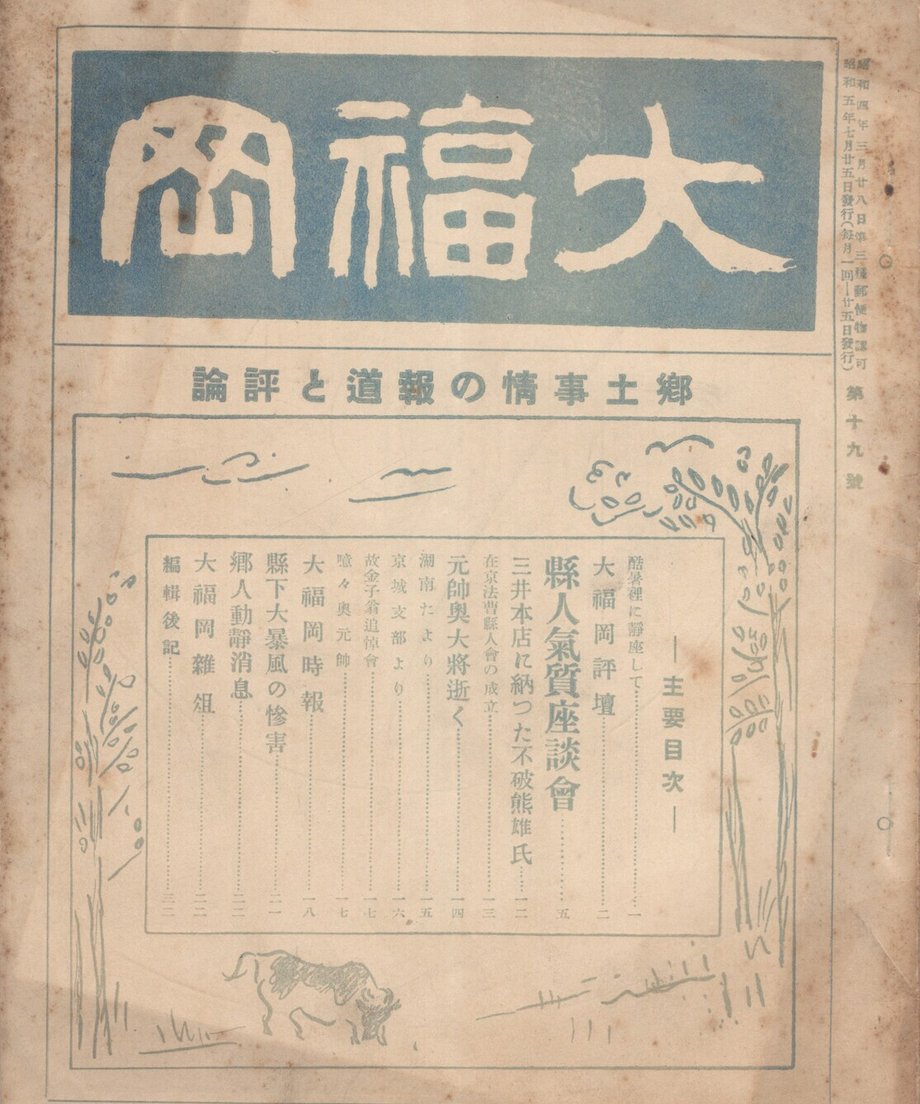 昭和四年三月廿八日第三種郵便物認可
昭和五年七月廿五日發行(每月一回—廿五日發行)
第十九號
大福岡
鄉土事情の報道と評論
—主要目次—
酷暑裡に靜座して……一
大福岡評壇……二
縣人氣質座談會……五
三井本店に納つた不破熊雄氏……一二
在京法曹縣人會の成立……一三
元帥奥大將逝く……一四
湖南だより……一五
京城支部より……一六
故金子翁追悼會……一七
噫々奥元帥……一七
大福岡時報……一八
縣下大暴風の慘害……二一
鄉人動靜消息……二二
大福岡雜俎……二二
編輯後記……二二